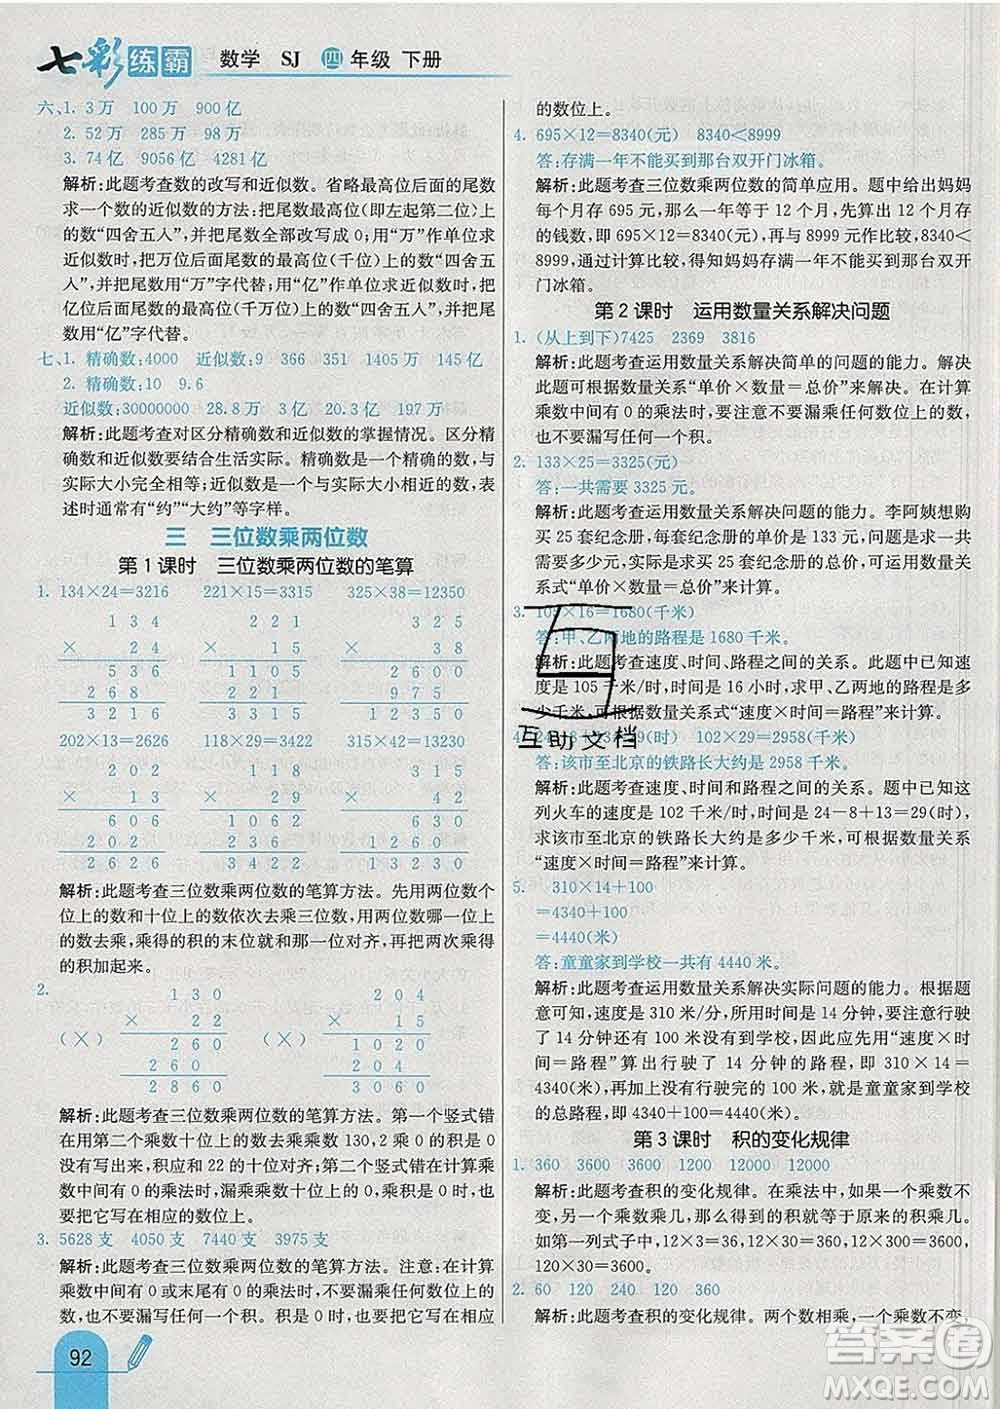 七彩练霸 数学 SJ 四年级 下册
六、1. 3万 100万 900亿
2. 52万 285万 98万
3. 74亿 9056亿 4281亿
解析:此题考查数的改写和近似数。省略最高位后面的尾数
求一个数的近似数的方法:把尾数最高位(即左起第二位)上
的数“四舍五入”,并把尾数全部改写成0;用“万”作单位求
近似数时,把万位后面的尾数的最高位(千位)上的数“四舍
五入”,并把尾数用“万”字代替;用“亿”作单位求近似数时,把
亿位后面的尾数的最高位(千万位)上的数“四舍五入”,并把尾
数用“亿”字代替。
七、1. 精确数:4000 近似数:9 366 351 1405万 145亿
2. 精确数:10 9.6
近似数:30000000 28.8万 3亿 20.3亿 197万
解析:此题考查对区分精确数和近似数的掌握情况。区分精
确数和近似数要结合生活实际。精确数是一个精确的数,与
实际大小完全相等;近似数是一个与实际大小比较接近的数,表
述时通常有“约”“大约”等字样。
三 三位数乘两位数
第1课时 三位数乘两位数的笔算
1. 134×24=3216 221×15=3315 325×38=12350
1 3 4 2 2 1 3 2 5
× 2 4 × 1 5 × 3 8
5 3 6 1 1 0 5 2 6 0 0
2 6 8 2 2 1 9 7 5
3 2 1 6 3 3 1 5 1 2 3 5 0
202×13=2626 118×29=3422 315×42=13230
2 0 2 1 1 8 3 1 5
× 1 3 × 2 9 × 4 2
6 0 6 1 0 6 2 6 3 0
2 0 2 2 3 6 1 2 6 0
2 6 2 6 3 4 2 2 1 3 2 3 0
解析:此题考查三位数乘两位数的笔算方法。先用两位数个
位上的数和十位上的数依次去乘三位数,用两位数哪一位上
的数去乘,乘得的积的末位就和那一位对齐,再把两次乘得
的积加起来。
2.
1 3 0 2 0 4
× 2 2 × 1 5
(×) 2 6 0 (×) 1 0 2 0
2 6 0 2 0 4
2 8 6 0 3 0 6 0
解析:此题考查三位数乘两位数的笔算方法。第一个竖式错
在用第二个乘数十位上的数去乘乘数130,2乘0的积是0
没有写出来,积应和22的十位对齐;第二个竖式错在计算乘
数十位是0的乘法时,漏乘乘数十位上的0了。积是几,就
要把它写在相应的数位上。
3. 5628支 4050支 7440支 3975支
解析:此题考查三位数乘两位数的笔算方法。注意:在计算
乘数中间有0或末尾有0的乘法时,不要漏乘任何数位上的
数,也不要漏写任何一个积。积是0时,也要把它写在相应
的数位上。
4. 695×12=8340(元) 8340<8999
答:存满一年不能买到那台双开门冰箱。
解析:此题考查三位数乘两位数的简单应用。题中给出妈妈
每个月存695元,求一年存的钱数,一年等于12个月,先算出12个月存
的钱数,即695×12=8340(元),再与8999元作比较,8340<
8999,通过计算比较,得知妈妈存满一年不能买到那台双开
门冰箱。
第2课时 运用数量关系解决问题
1. (从上到下)7425 2369 3816
解析:此题考查运用数量关系解决简单的问题的能力。解决
此题可根据数量关系“单价×数量=总价”来解决。在计算
乘数中间有0的乘法时,要注意不要漏乘任何数位上的数,
也不要漏写任何一个积。
2. 133×25=3325(元)
答:一共需要3325元。
解析:此题考查运用数量关系解决问题的能力。李阿姨想购
买25套纪念册,每套纪念册的单价是133元,求购买25套纪念
册需要多少元,就是求25套纪念册的总价,可以根据数量关
系式“单价×数量=总价”来计算。
3. 105×16=1680(千米)
答:甲、乙两地的路程是1680千米。
解析:此题考查速度、时间、路程之间的关系。此题中已知速
度是105千米/时,时间是16小时,求甲、乙两地的路程是多
少千米,可根据数量关系式“速度×时间=路程”来计算。
4. 24-8+13=29(时) 102×29=2958(千米)
答:该市至北京的铁路长大约是2958千米。
解析:此题考查速度、时间和路程之间的关系。题中已知这
列火车的速度是102千米/时,时间是24-8+13=29(时),
求该市至北京的铁路长大约是多少千米,可根据数量关系
“速度×时间=路程”来计算。
5. 310×14+100
=4340+100
=4440(米)
答:童童家到学校一共有4440米。
解析:此题考查运用数量关系解决实际问题的能力。根据题
意可知,速度是310米/分,时间是14分钟,要注意行驶14
分钟后离学校还有100米没有行驶,因此应先用“速度×时
间=路程”算出行驶了14分钟的路程,即310×14=
4340(米),再加上没有行驶完的100米,就是童童家到学校
的总路程,即4340+100=4440(米)。
第3课时 积的变化规律
1. 360 3600 3600 1200 12000 12000
解析:此题考查积的变化规律。在乘法中,如果一个乘数不
变,另一个乘数乘几,那么得到的积就等于原来的积乘几。
如第一列式子中,12×3=36,12×30=360,
120×30=3600。
2. 60 120 240 120 360
解析:此题考查积的变化规律。两个数相乘,一个乘数不变,
92
互助文档
答案圈
MXQE.COM